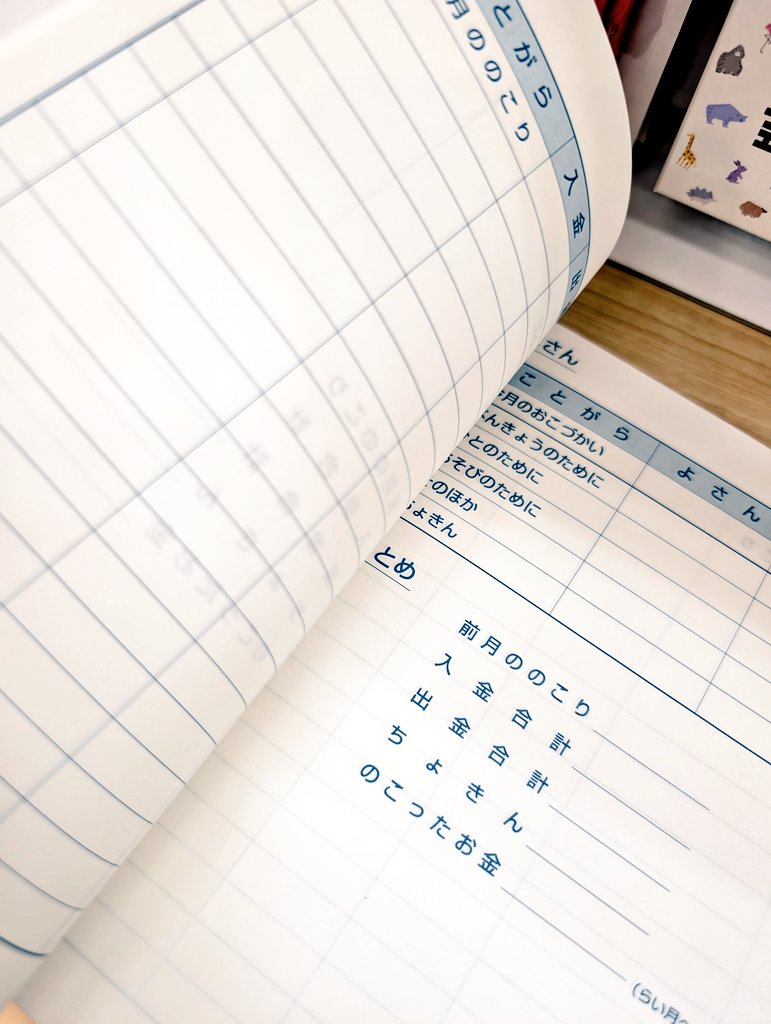 とがら 入金 出
月ののこり
さん
ことがら よさん
月のおこづかい
んきょうのために
とのために
そびのために
のほか
ちょきん
とめ
前月ののこり
入金合計
出金合計
ちょきん
のこったお金
(らい月へ